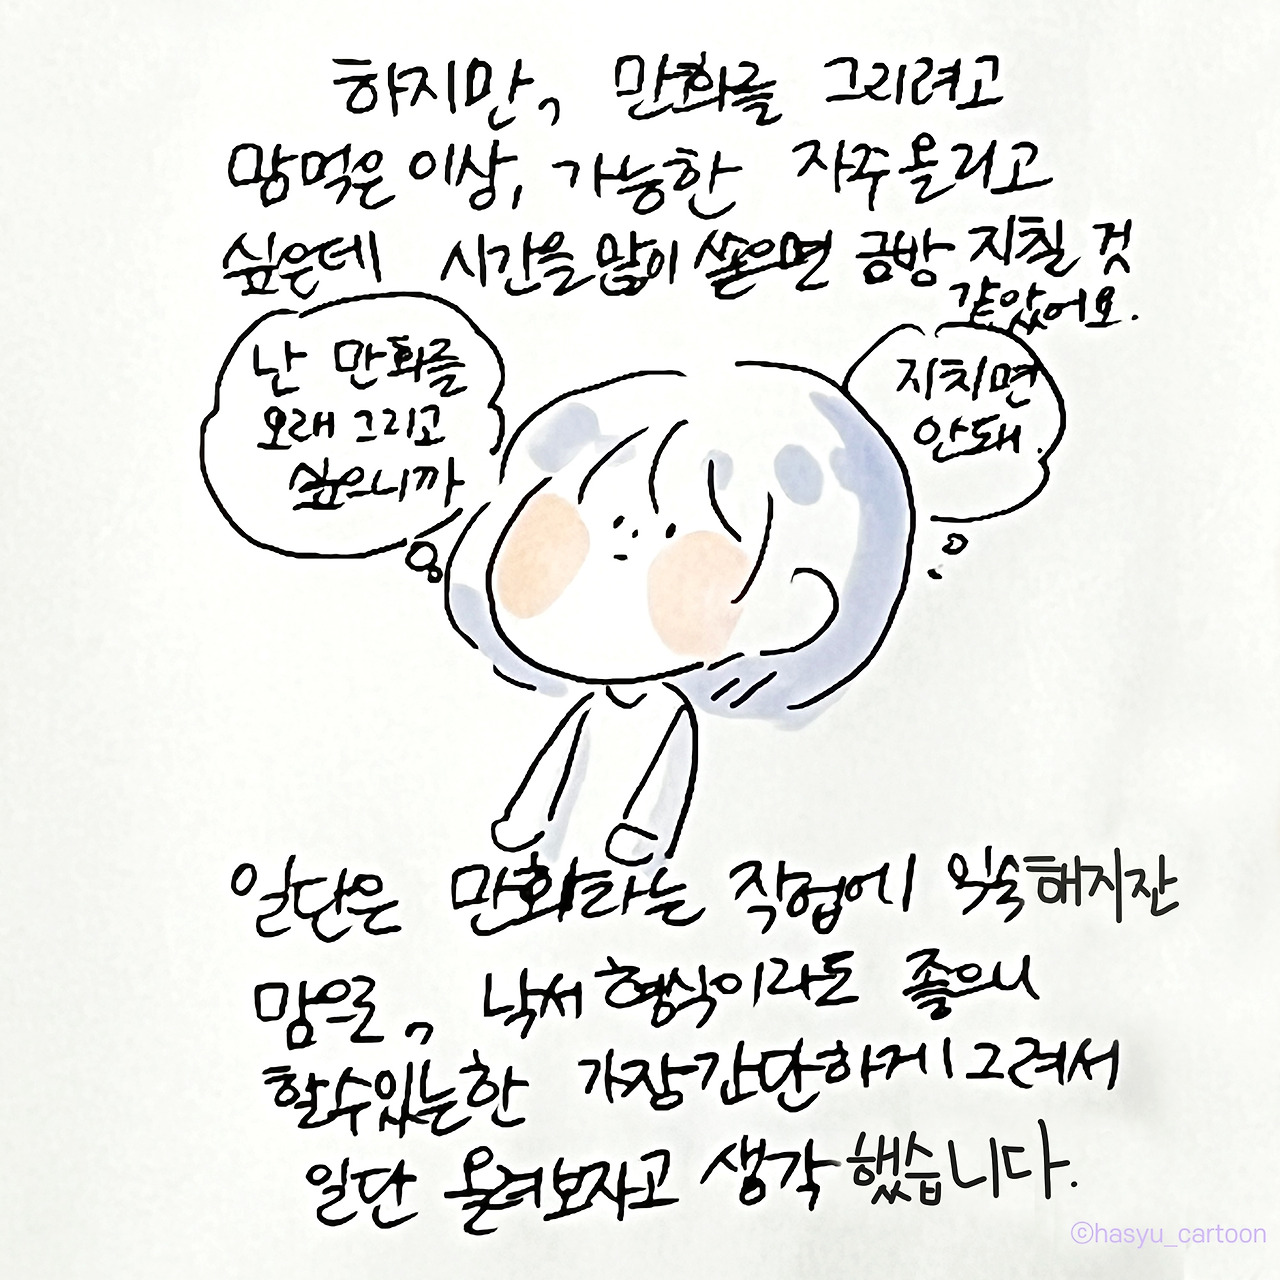 하지만, 만화를 그리려고
맘먹은 이상, 가능한 자주 올리고
싶은데 시간을 많이 쏟으면 금방 지칠 것
같았어요.
난 만화를
오래 그리고
싶으니까
지치면
안돼.
일단은 만화라는 작업에 익숙해지잔
맘으로, 낙서 형식이라도 좋으니
할수있는한 가장 간단하게 그려서
일단 올려보자고 생각했습니다.
©hasyu_cartoon